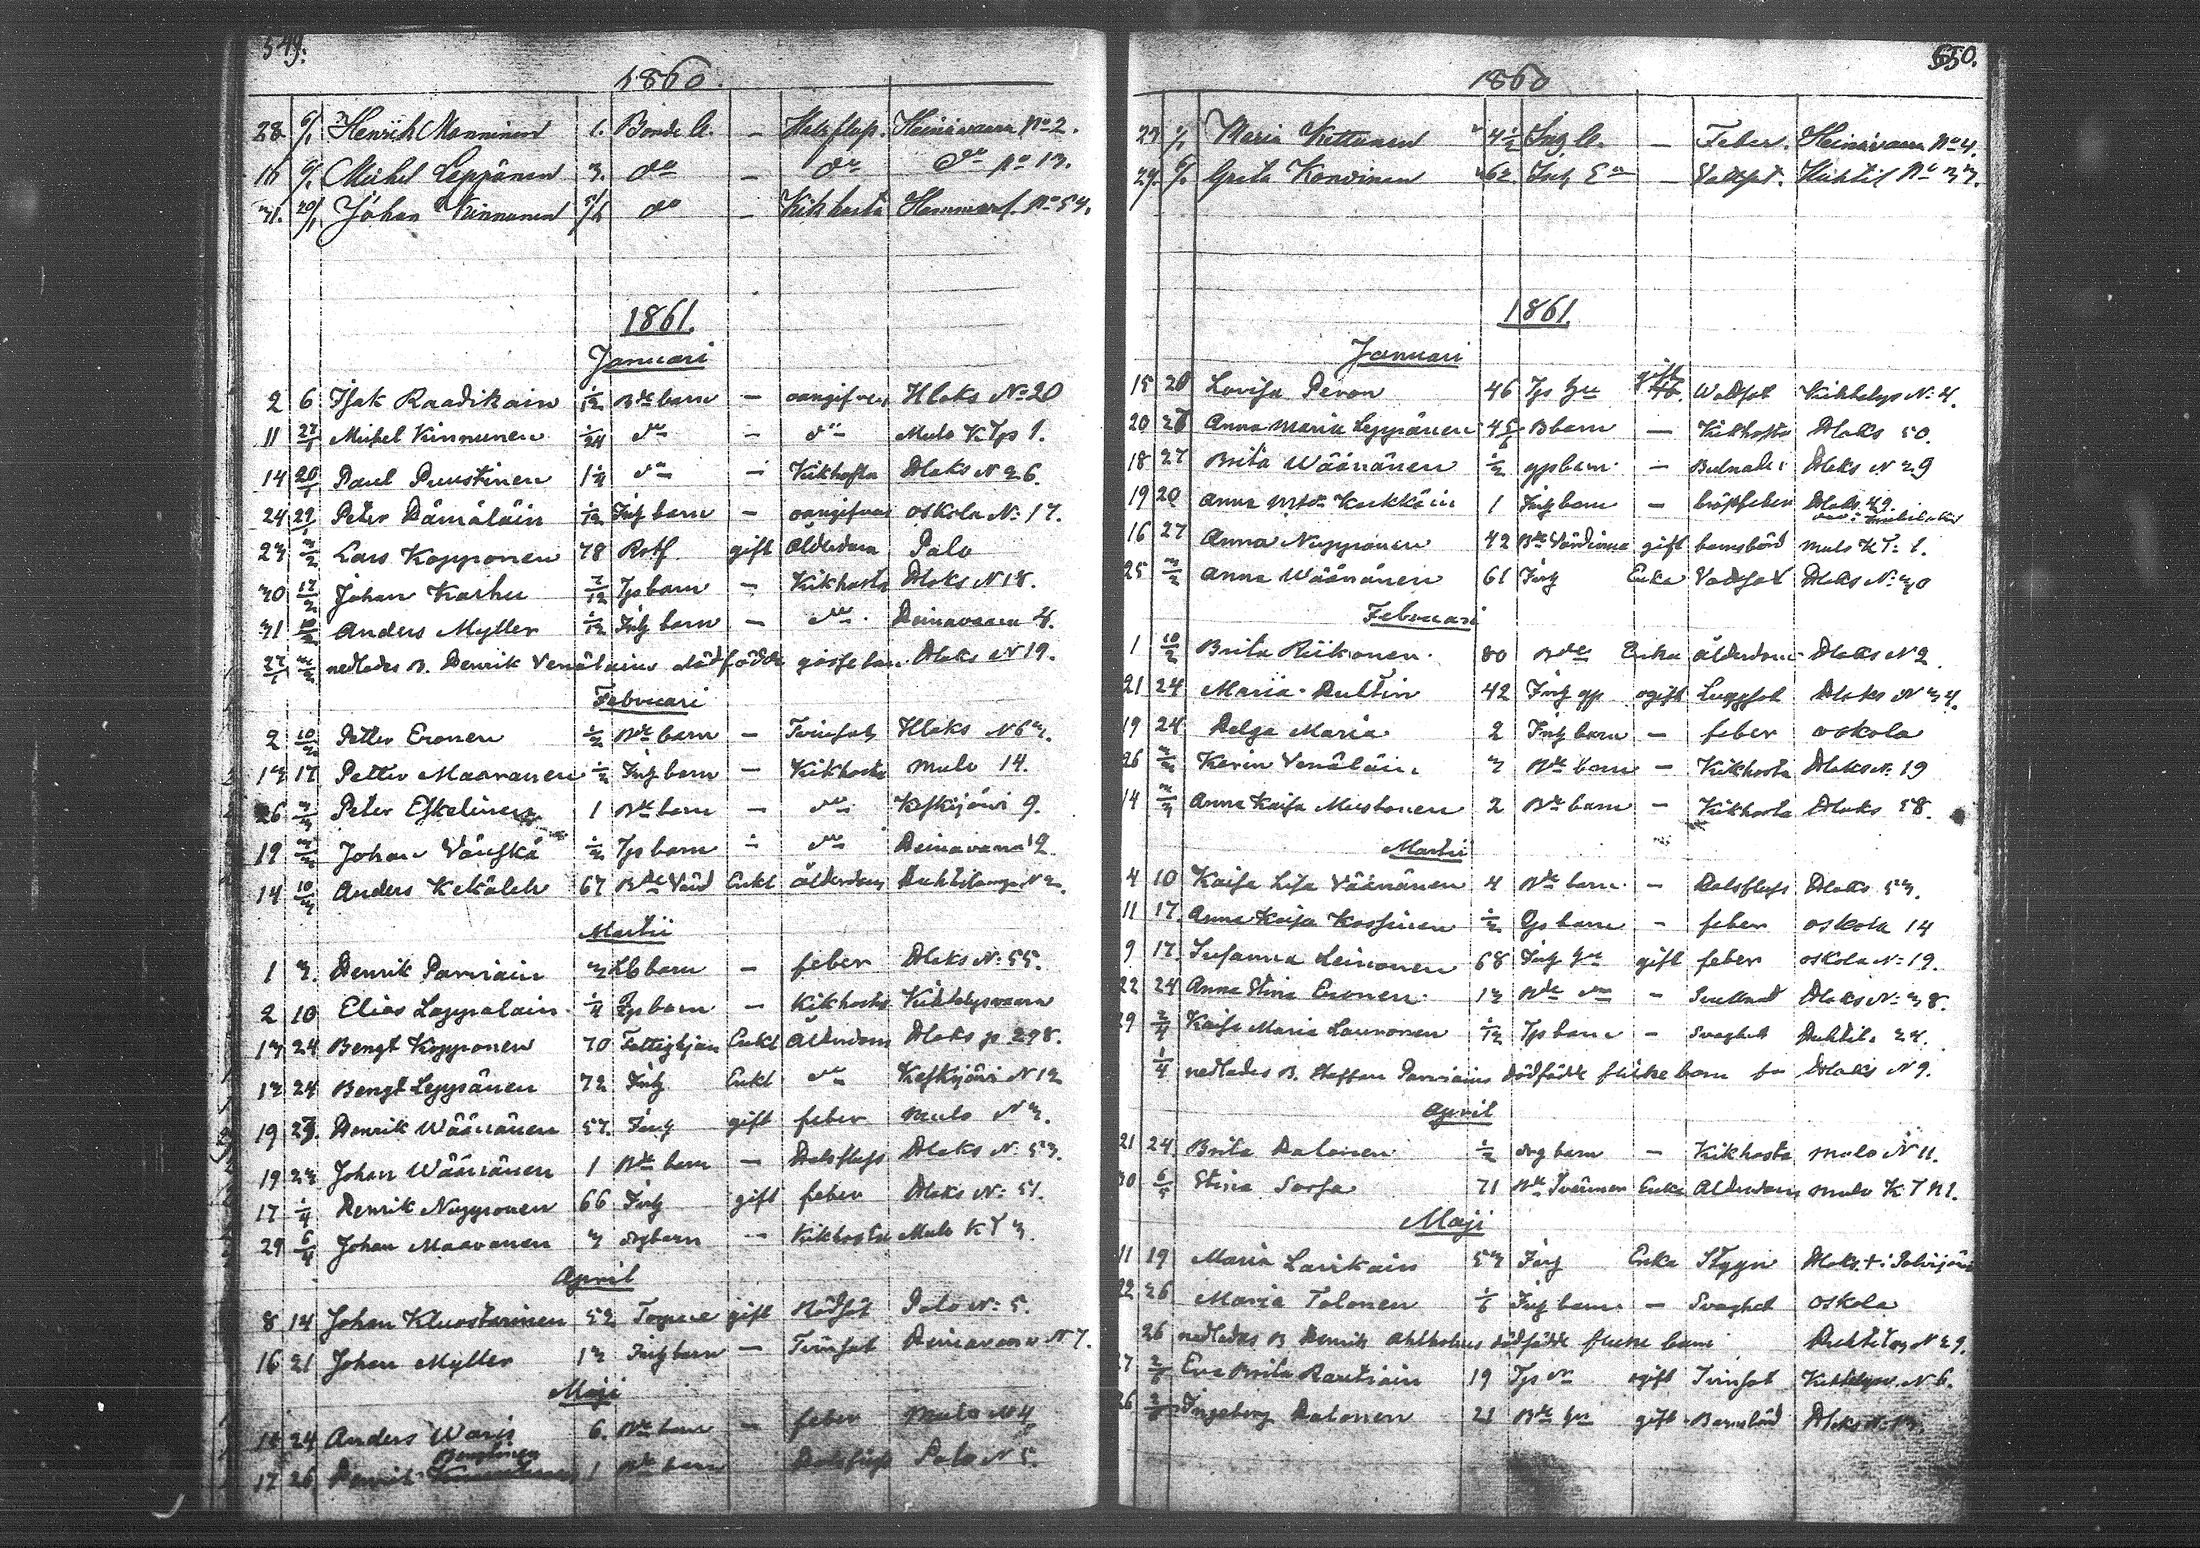 549.
1860.
28. 6/1 Henrik Manninen 1. Bonde b. — Halsflup. Heinävaara No 2.
16 6/1 Michel Leppänen 3. do — do do No 13.
31. 20/1 Johan Kinnunen 5/12 do — Kikhosta Hammasl. No 54.
1861.
Januari
2 6 Isak Raadikain 1/12 Bde barn — oangifven Hlaks No 20
11 27/1 Michel Kinnunen 1/24 do — do Mulo K Tp 1.
14 20/1 Paul Puustinen 1 1/4 do — Kikhosta Hlaks N 26.
24 29/1 Peter Hämäläin 1/12 Inh barn — oangifven oskola N: 17.
23 3/2 Lars Kopponen 78 Rotf gift Ålderdom Palo
30 17/2 Johan Karhu 7/12 Tps barn — Kikhosta Hlaks N 18.
31 10/2 Anders Myller 1/12 Inh barn — do Heinavaara 4.
27/1 3/2 nedlades B. Henrik Venäläins dödfödda gossebarn Hlaks N 19.
Februari
2 10/2 Petter Eronen 1/2 Bde barn — Tvinsot Hlaks N 63.
13 17 Petter Maavanen 1/2 Inh barn — Kikhosta Mulo 14.
26 3/3 Peter Eskelinen 1 Bde barn — do Keskijärvi 9.
19 3/3 Johan Vänskä 1/2 Tps barn — do Heinavaara 12
14 10/3 Anders Kekäleh 67 Bde Värd Enkl ålderdom Huhtilamp. N 2.
Martii
1 3. Henrik Parviain 3 barn — feber Hlaks N: 55.
2 10 Elias Lappalain 1/4 Tps barn — Kikhosta Kikhelysvaara
13 24 Bengt Kopponen 70 Fattighjon Enkl Ålderdom Hlaks p 298.
13 24 Bengt Leppänen 72 Inh Enkl do Keskijärvi N 12
19 29. Henrik Wäänänen 57. Inh gift feber Mulo N 3.
19 23 Johan Wäänänen 1 Bde barn — Halsfluss Hlaks N. 53.
17 1/4 Henrik Nupponen 66 Inh gift feber Hlaks N: 51.
29 6/4 Johan Maavanen 3 drg barn — Kikhosta Mulo K T 3.
April
8 14 Johan Kluostarinen 52 Torpare gift Rödsot Palo N: 5.
16 21 Johan Myller 13 Inh barn — Tvinsot Heinavaara N 7.
Maji
11 24 Anders Waris 6. Bde barn — feber Mulo N 4
17 26 Henrik 1 Bde barn Halsfluss Palo N 5.
550.
1860
23 1/1 Maria Kettunen 4 1/2 Inh b. — Feber. Heinävaara No 4.
29. 6/1 Greta Korvinen 62 Inh Ea — Vattsot. Huhtil No 33.
1861.
Januari
15 20 Lovisa Piron 46 Tps hu gift Wattsot Kikhelys N: 4.
20 26 Anna Maria Leppänen 4 5/6 B barn — Kikhosta Hlaks 50.
18 27 Brita Wäänänen 1/2 tps barn — Hlaks N 29
19 20 Anna Kukkäin 1 Inh barn — bröstfeber Hlaks 49.
16 27 Anna Nupponen 42 Bde Värdinna gift barnsbörd Mulo K T: 1.
25 3/2 Anna Wäänänen 61 Inh Enka Vattsot Hlaks N: 30
Februari
1 10/2 Brita Riikonen 80 Bde Enka ålderdom Hlaks N 2
21 24 Maria Hultin 42 Inh gp ogift Lungsot Hlaks N 34.
19 24 Helga Maria 2 Inh barn — feber oskola
26 3/3 Karin Venäläin 3 Bde barn — Kikhosta Hlaks N: 19
14 3/3 Anna Kaisa Mustonen 2 Bde barn — Kikhosta Hlaks 58.
Martii
4 10 Kaisa Lisa Väänänen 4 Bde barn — Halsfluss Hlaks 53.
11 17. Anna Kaisa Kossinen 1/2 Tps barn — feber oskola 14
9 17. Susanna Leinonen 68 Inh hu gift feber oskola N: 19.
22 24 Anna Stina Eronen 13 Bde do — Hlaks N: 38.
29 2/4 Kaisa Maria Lauronen 1/12 Tps barn — Svaghet Huhtil. 24.
1/4 nedlades B. Staffan Parviains dödfödde flicke barn fr Hlaks N 9.
April
21 24 Brita Halonen 1/2 drg barn — Kikhosta Mulo N 11.
30 6/5 Stina Sorsa 71 Bde Enka Ålderdom Mulo K T N 1.
Maji
11 19 Maria Lavikain 53 Inh Enka Stygn Hlaks. + i Polvijärvi
22 26 Maria Tolonen 1/6 Inh barn — Svaghet oskola
26 nedlades B Henrik Ahlholms dödfödde flicke barn Huhtilamp N 29.
27 2/6 Eva Brita Rautiain 19 Tps dr ogift Tvinsot Kikhelysv. N 6.
26 2/6 Ingeborg Halonen 21 Bde hu gift Barnsbörd Hlaks N. 13.